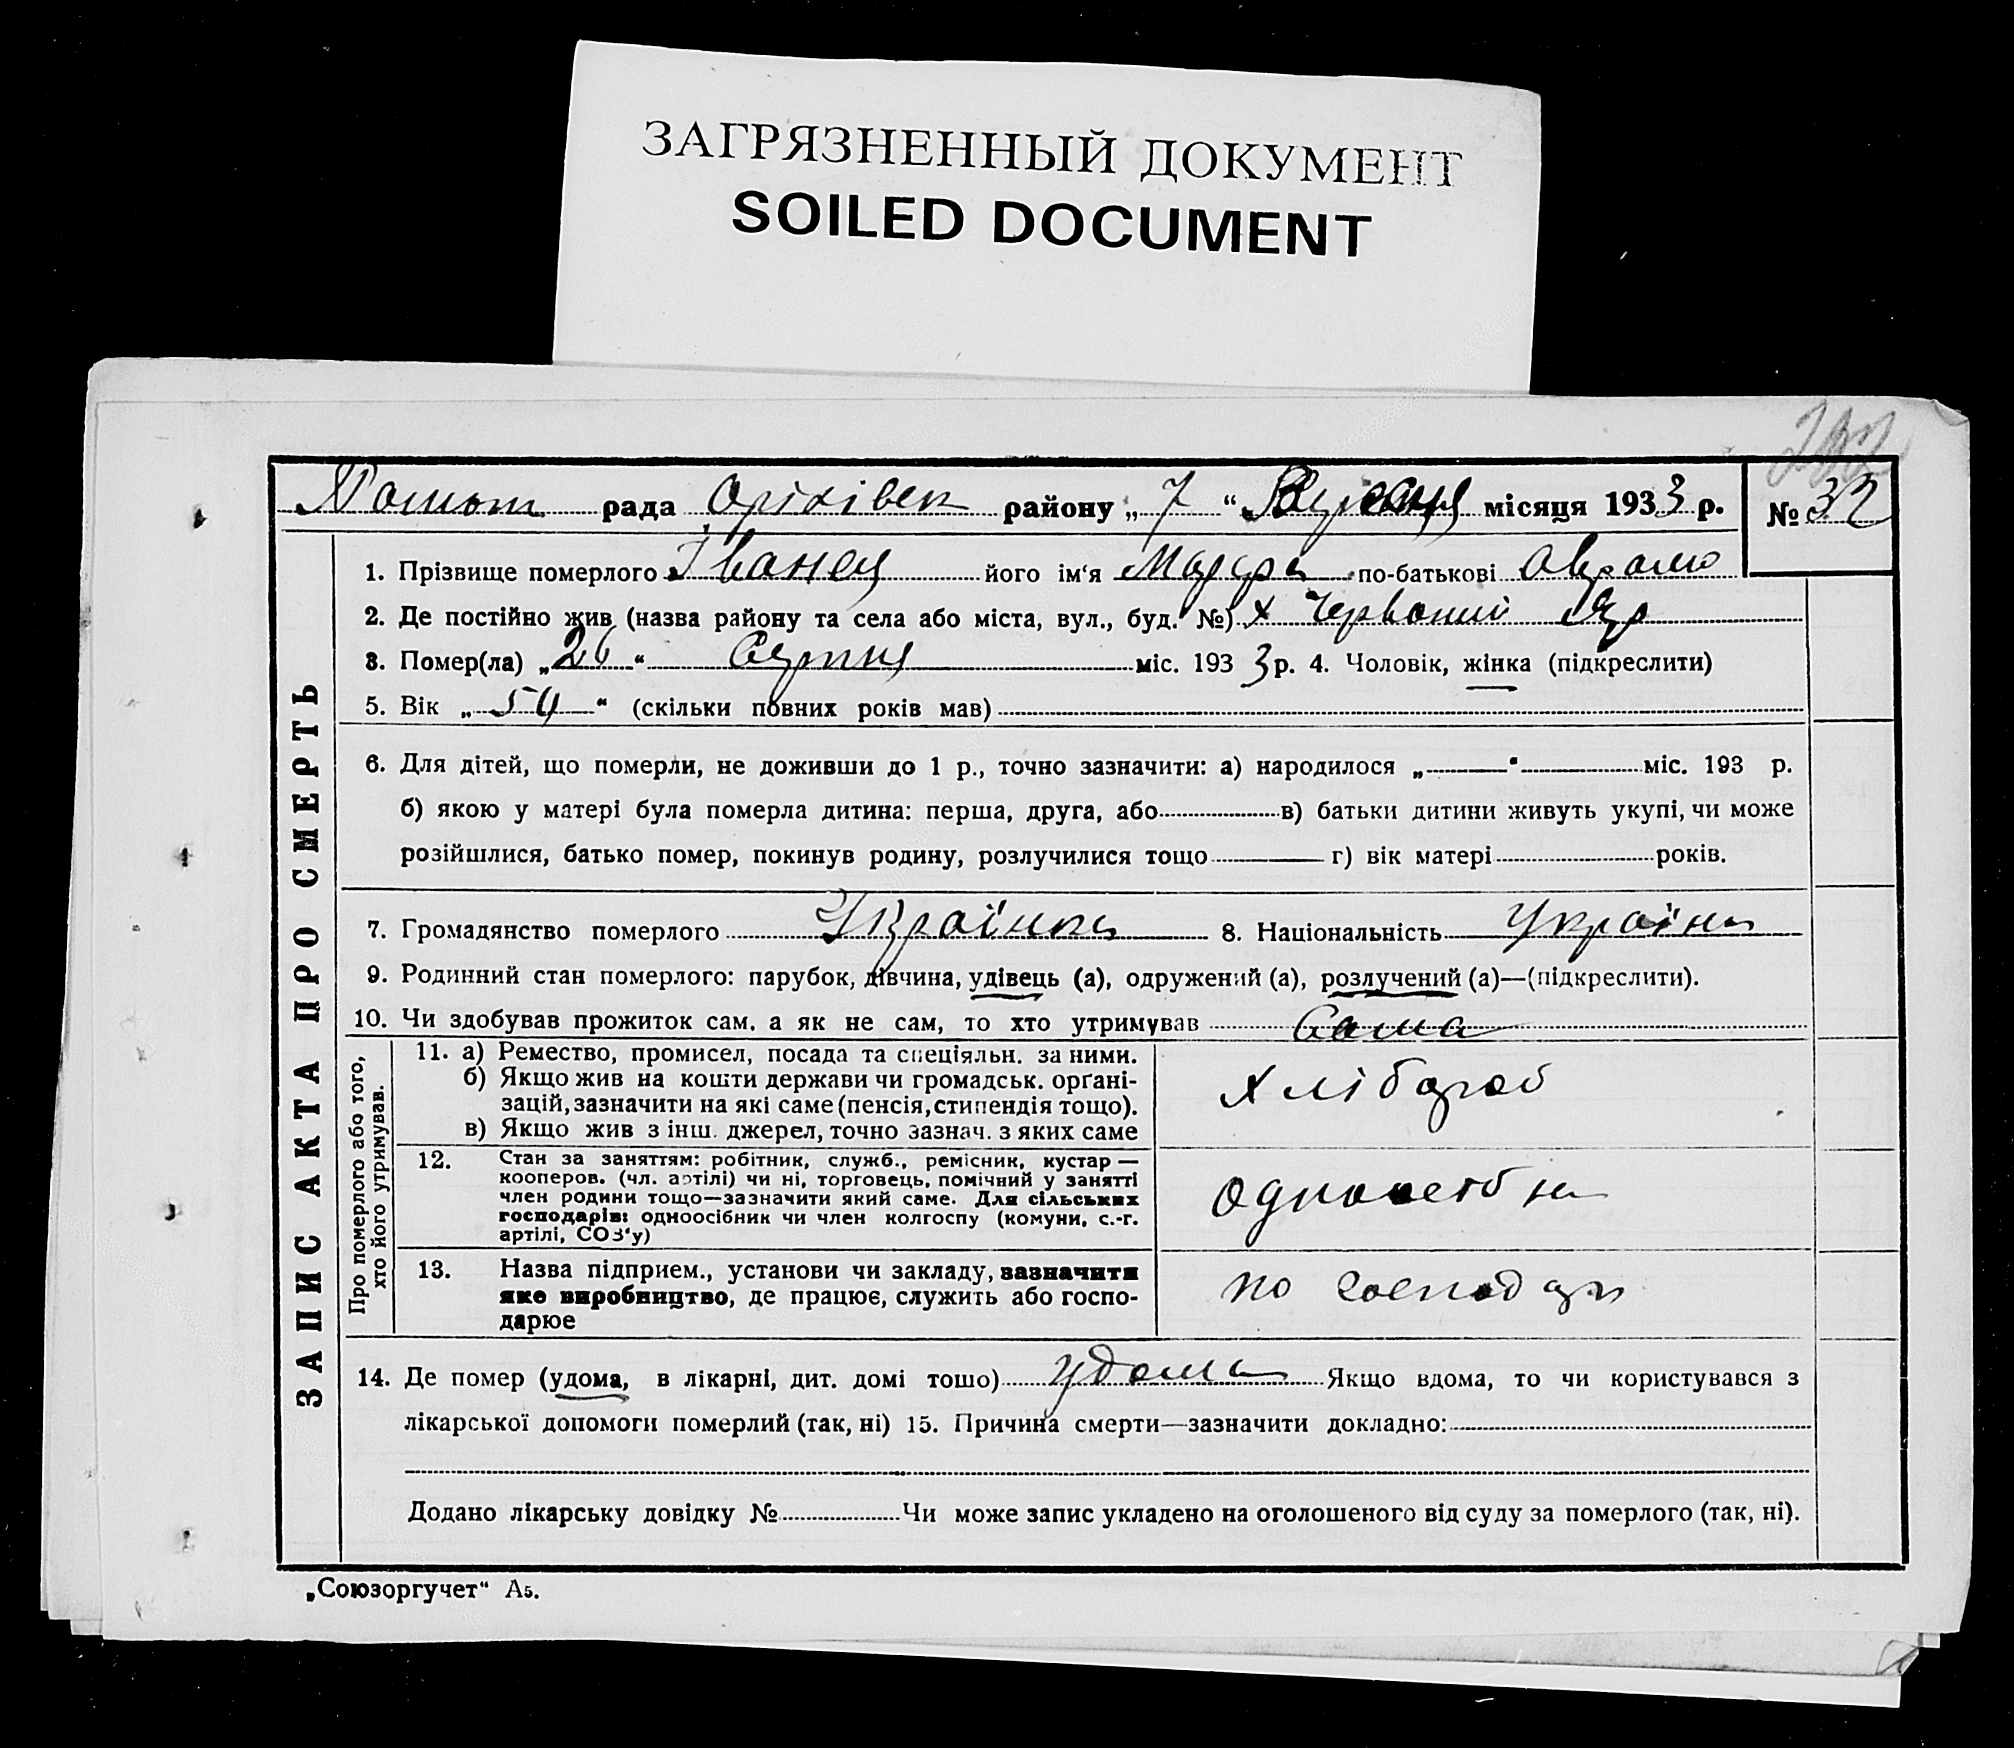 ЗАГРЯЗНЕННЫЙ ДОКУМЕНТ
SOILED DOCUMENT
рада Оріхівск району „ 7 “ місяця 1933 р. № 32
ЗАПИС АКТА ПРО СМЕРТЬ
1. Прізвище померлого Іванец його ім‘я Марфа по-батькові Аврамо
2. Де постійно жив (назва району та села або міста, вул., буд. №) х Червоний Яр
3. Помер(ла) „ 26 “ Серпня міс. 193 3 р. 4. Чоловік, жінка (підкреслити)
5. Вік „ 54 “ (скільки повних років мав)
6. Для дітей, що померли, не доживши до 1 р., точно зазначити: а) народилося „ “ міс. 193 р.
б) якою у матері була померла дитина: перша, друга, або в) батьки дитини живуть укупі, чи може
розійшлися, батько помер, покинув родину, розлучилися тощо г) вік матері років.
7. Громадянство померлого Українка 8. Національність Україн
9. Родинний стан померлого: парубок, дівчина, удівець (а), одружений (а), розлучений (а)—(підкреслити).
10. Чи здобував прожиток сам, а як не сам, то хто утримував Сама
Про померлого або того,
хто його утримував.
11. а) Ремество, промисел, посада та спеціяльн. за ними.
б) Якщо жив на кошти держави чи громадськ. орґані-
зацій, зазначити на які саме (пенсія, стипендія тощо).
в) Якщо жив з інш. джерел, точно зазнач. з яких саме
Хлібороб
12. Стан за заняттям: робітник, служб., ремісник, кустар —
кооперов. (чл. артілі) чи ні, торговець, помічний у занятті
член родини тощо—зазначити який саме. Для сільських
господарів: одноосібник чи член колгоспу (комуни, с.-г.
артілі, СОЗ‘у)
13. Назва підприєм., установи чи закладу, зазначити
яке виробництво, де працює, служить або госпо-
дарюе
по господар
14. Де помер (удома, в лікарні, дит. домі тощо) удома Якщо вдома, то чи користувався з
лікарської допомоги померлий (так, ні) 15. Причина смерти—зазначити докладно:
Додано лікарську довідку № Чи може запис укладено на оголошеного від суду за померлого (так, ні).
„Союзоргучет“ А5.